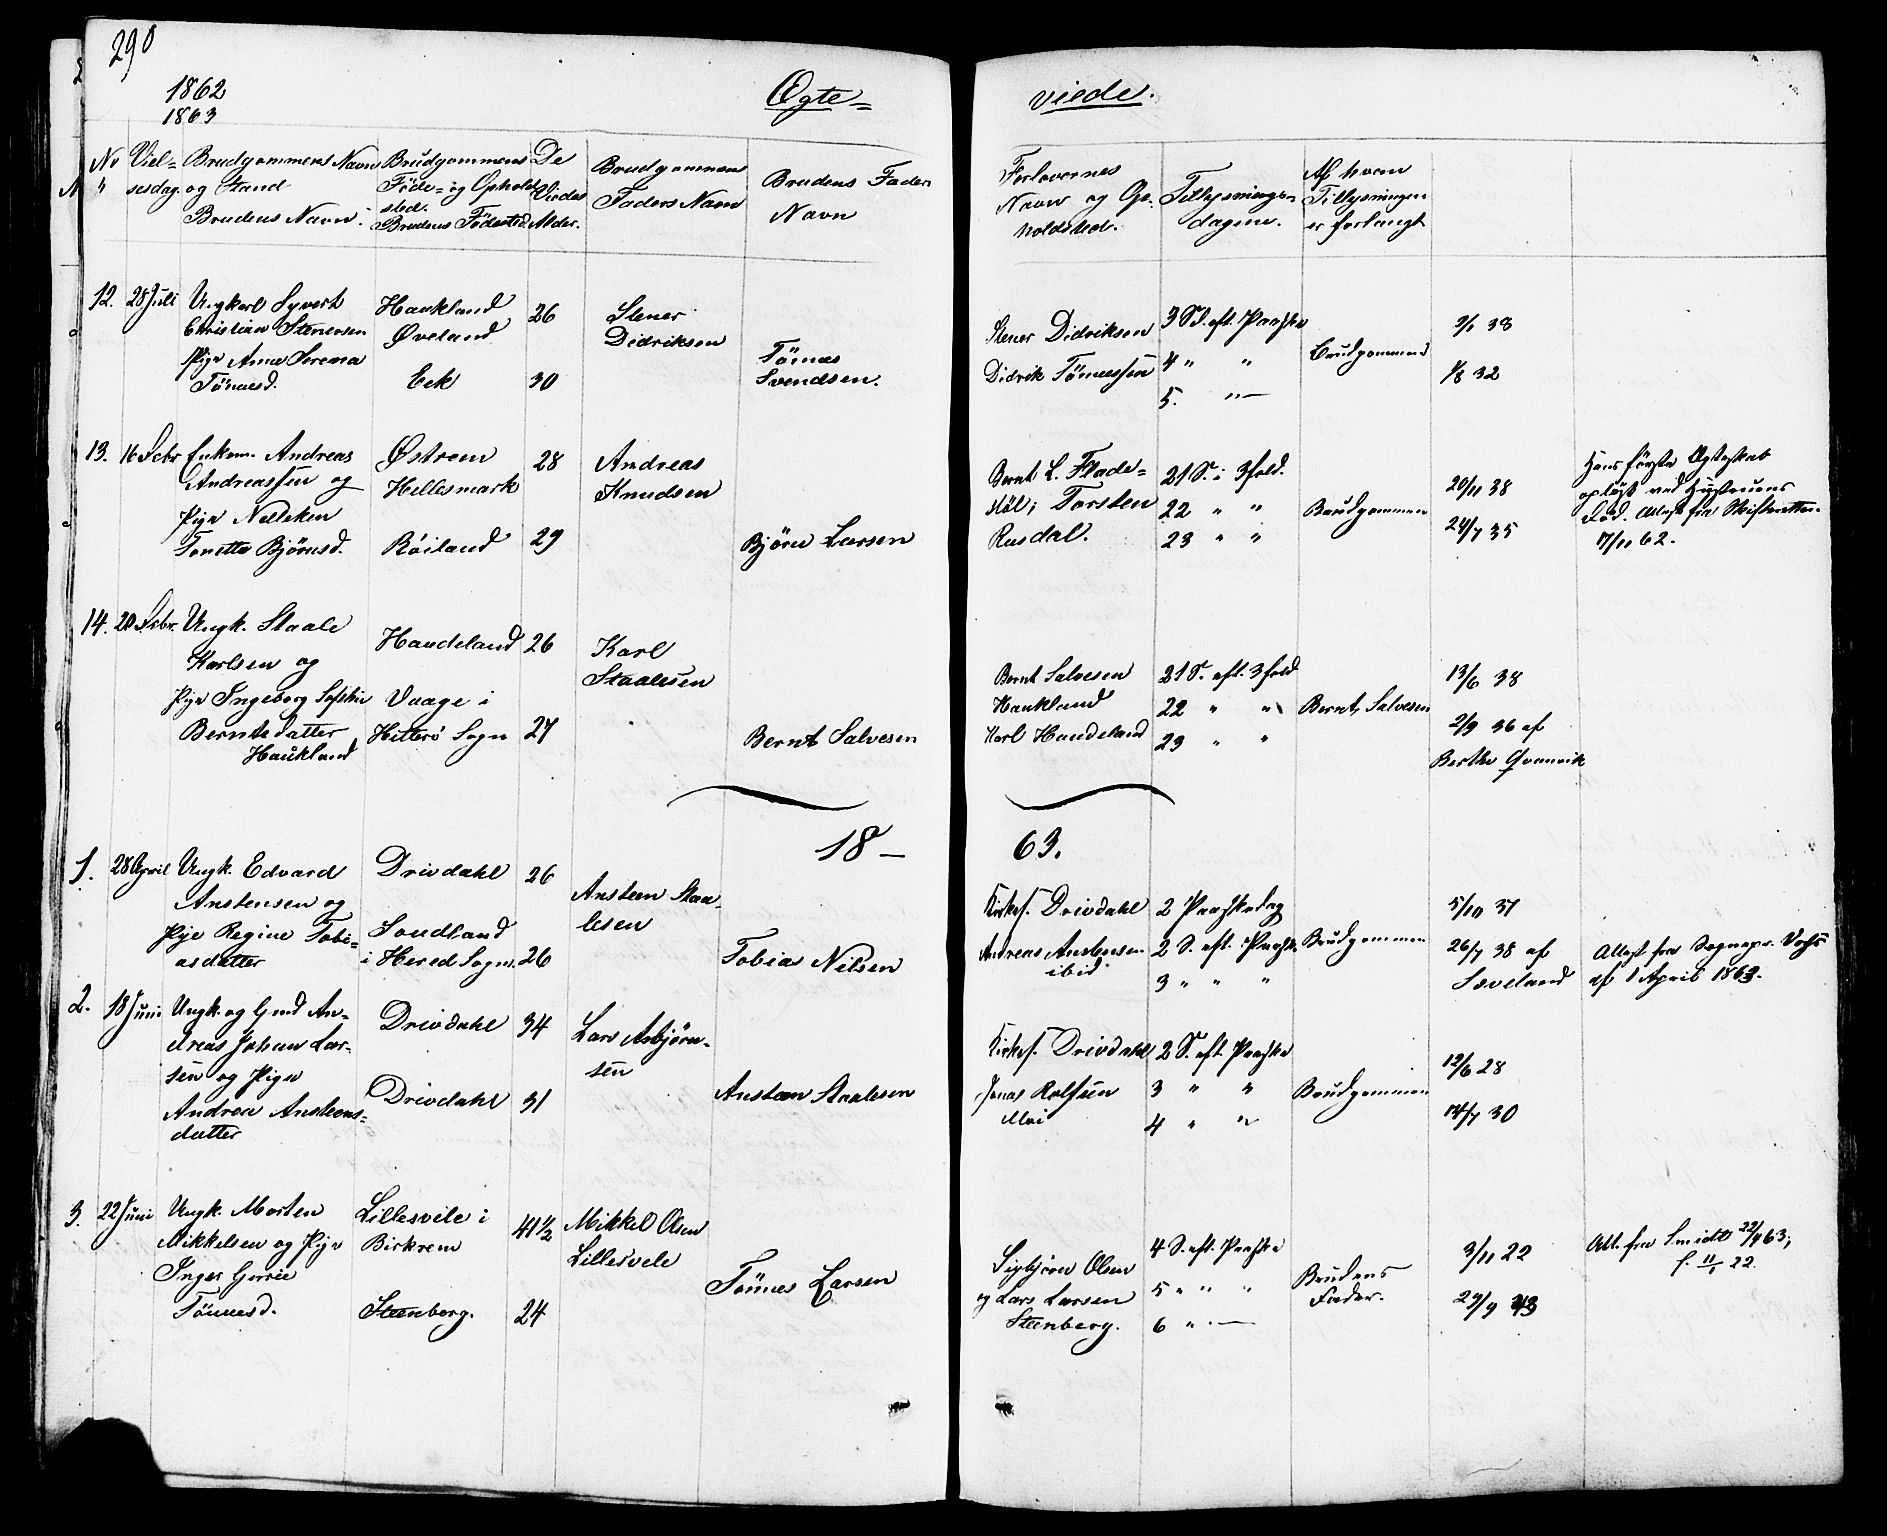 290
1862
1863
Ægte=
viede.
No
Viel=
sesdag.
Brudgommens Navn
og Stand
Brudens Navn.
Brudgommens
Føde= og Opholds
sted.
Brudens Fødested.
De
Viedes
Alder.
Brudgommens
Faders Navn
Brudens Fader
Navn
Forlovernes
Navn og Op-
holdsted.
Tillysnings
dagene.
Af hvem
Tillysningen
er forlangt
12. 28 Juli
Ungkarl Syvert
Christian Stenersen
Pige Anne Serema
Tönnesd.
Haukland
Øveland
Eek
26
30
Stener
Didriksen
Tönnes
Svendsen.
Stener Didriksen
Didrik Tönnessen
3 S. eft. Paaske
4 " "
5. "
Brudgommen
9/1 38
1/8 32
13. 16
Enkem. Andreas
Andreassen og
Pige Neleken
Tonette Bjørnsd.
Østrem
Hellesmark
Röiland
28
29
Andreas
Knudsen
Bjørn Larsen
Bernt L. Flade=
stöl; Torsten
Rusdal.
21 S. i 3fold.
22 " "
23 " "
Brudgommen
20/11 38
24/7 35
Hans første Ægteskab
opløst ved Hustruens
Död. Attest fra Skifteretten
17/11 62.
14. 20
Ungk. Staale
Karlsen og
Pige Ingeborg
Berntsdatter
Haukland
Haudeland
Vaage i
Hitterö Sogn
26
27
Karl
Staalesen
Bernt Salvesen
Bernt Salvesen
Haukland
Karl Haudeland
21 S. eft. 3fold
22 " "
23 " "
Bernt Salvesen
13/6 38
2/9 36 af
Berthe Qvanvik
18 — 63.
1. 28 April
Ungk. Edvard
Anstensen og
Pige Regine Tobi=
asdatter
Drivdahl
Soudland
i Hered Sogn.
26
26
Ansteen Staa-
lesen
Tobias Nilsen
Kirkes. Drivdahl
Andreas Anstensen
ibid.
2 Paaskedag
2 S. eft. Paaske
3 " " "
Brudgommen
5/10 37
26/7 38 af
Sæveland
Attest fra Sognepr. Vogt
af 1 April 1863.
2. 18 Juni
Ungk. og Gmd An=
dreas Johan Lar=
sen og Pige
Andrea Ansteens-
datter
Drivdahl
Drivdahl
34
31
Lars Asbjørn-
sen
Ansteen Staalesen
Kirkes. Drivdahl
Jonas Rolfsen
Moi
2 S. eft. Paaske
3 " "
4 " "
Brudgommen
12/6 28
14/7 30
3. 22 Juni
Ungk. Morten
Mikkelsen og Pige
Inger Gurie
Tönnesd.
Lillesvele i
Birkrem
Steenberg.
41 1/2
24
Mikkel Olsen
Lillesvele
Tönnes Larsen
Sigbjørn Olsen
og Lars Larsen
Steenberg.
4 S. eft. Paaske
5 " " "
6 "
Brudens
Fader.
3/11 22
29/9 43
Att. fra Smidt 22/4 63;
f. 11/1 22.